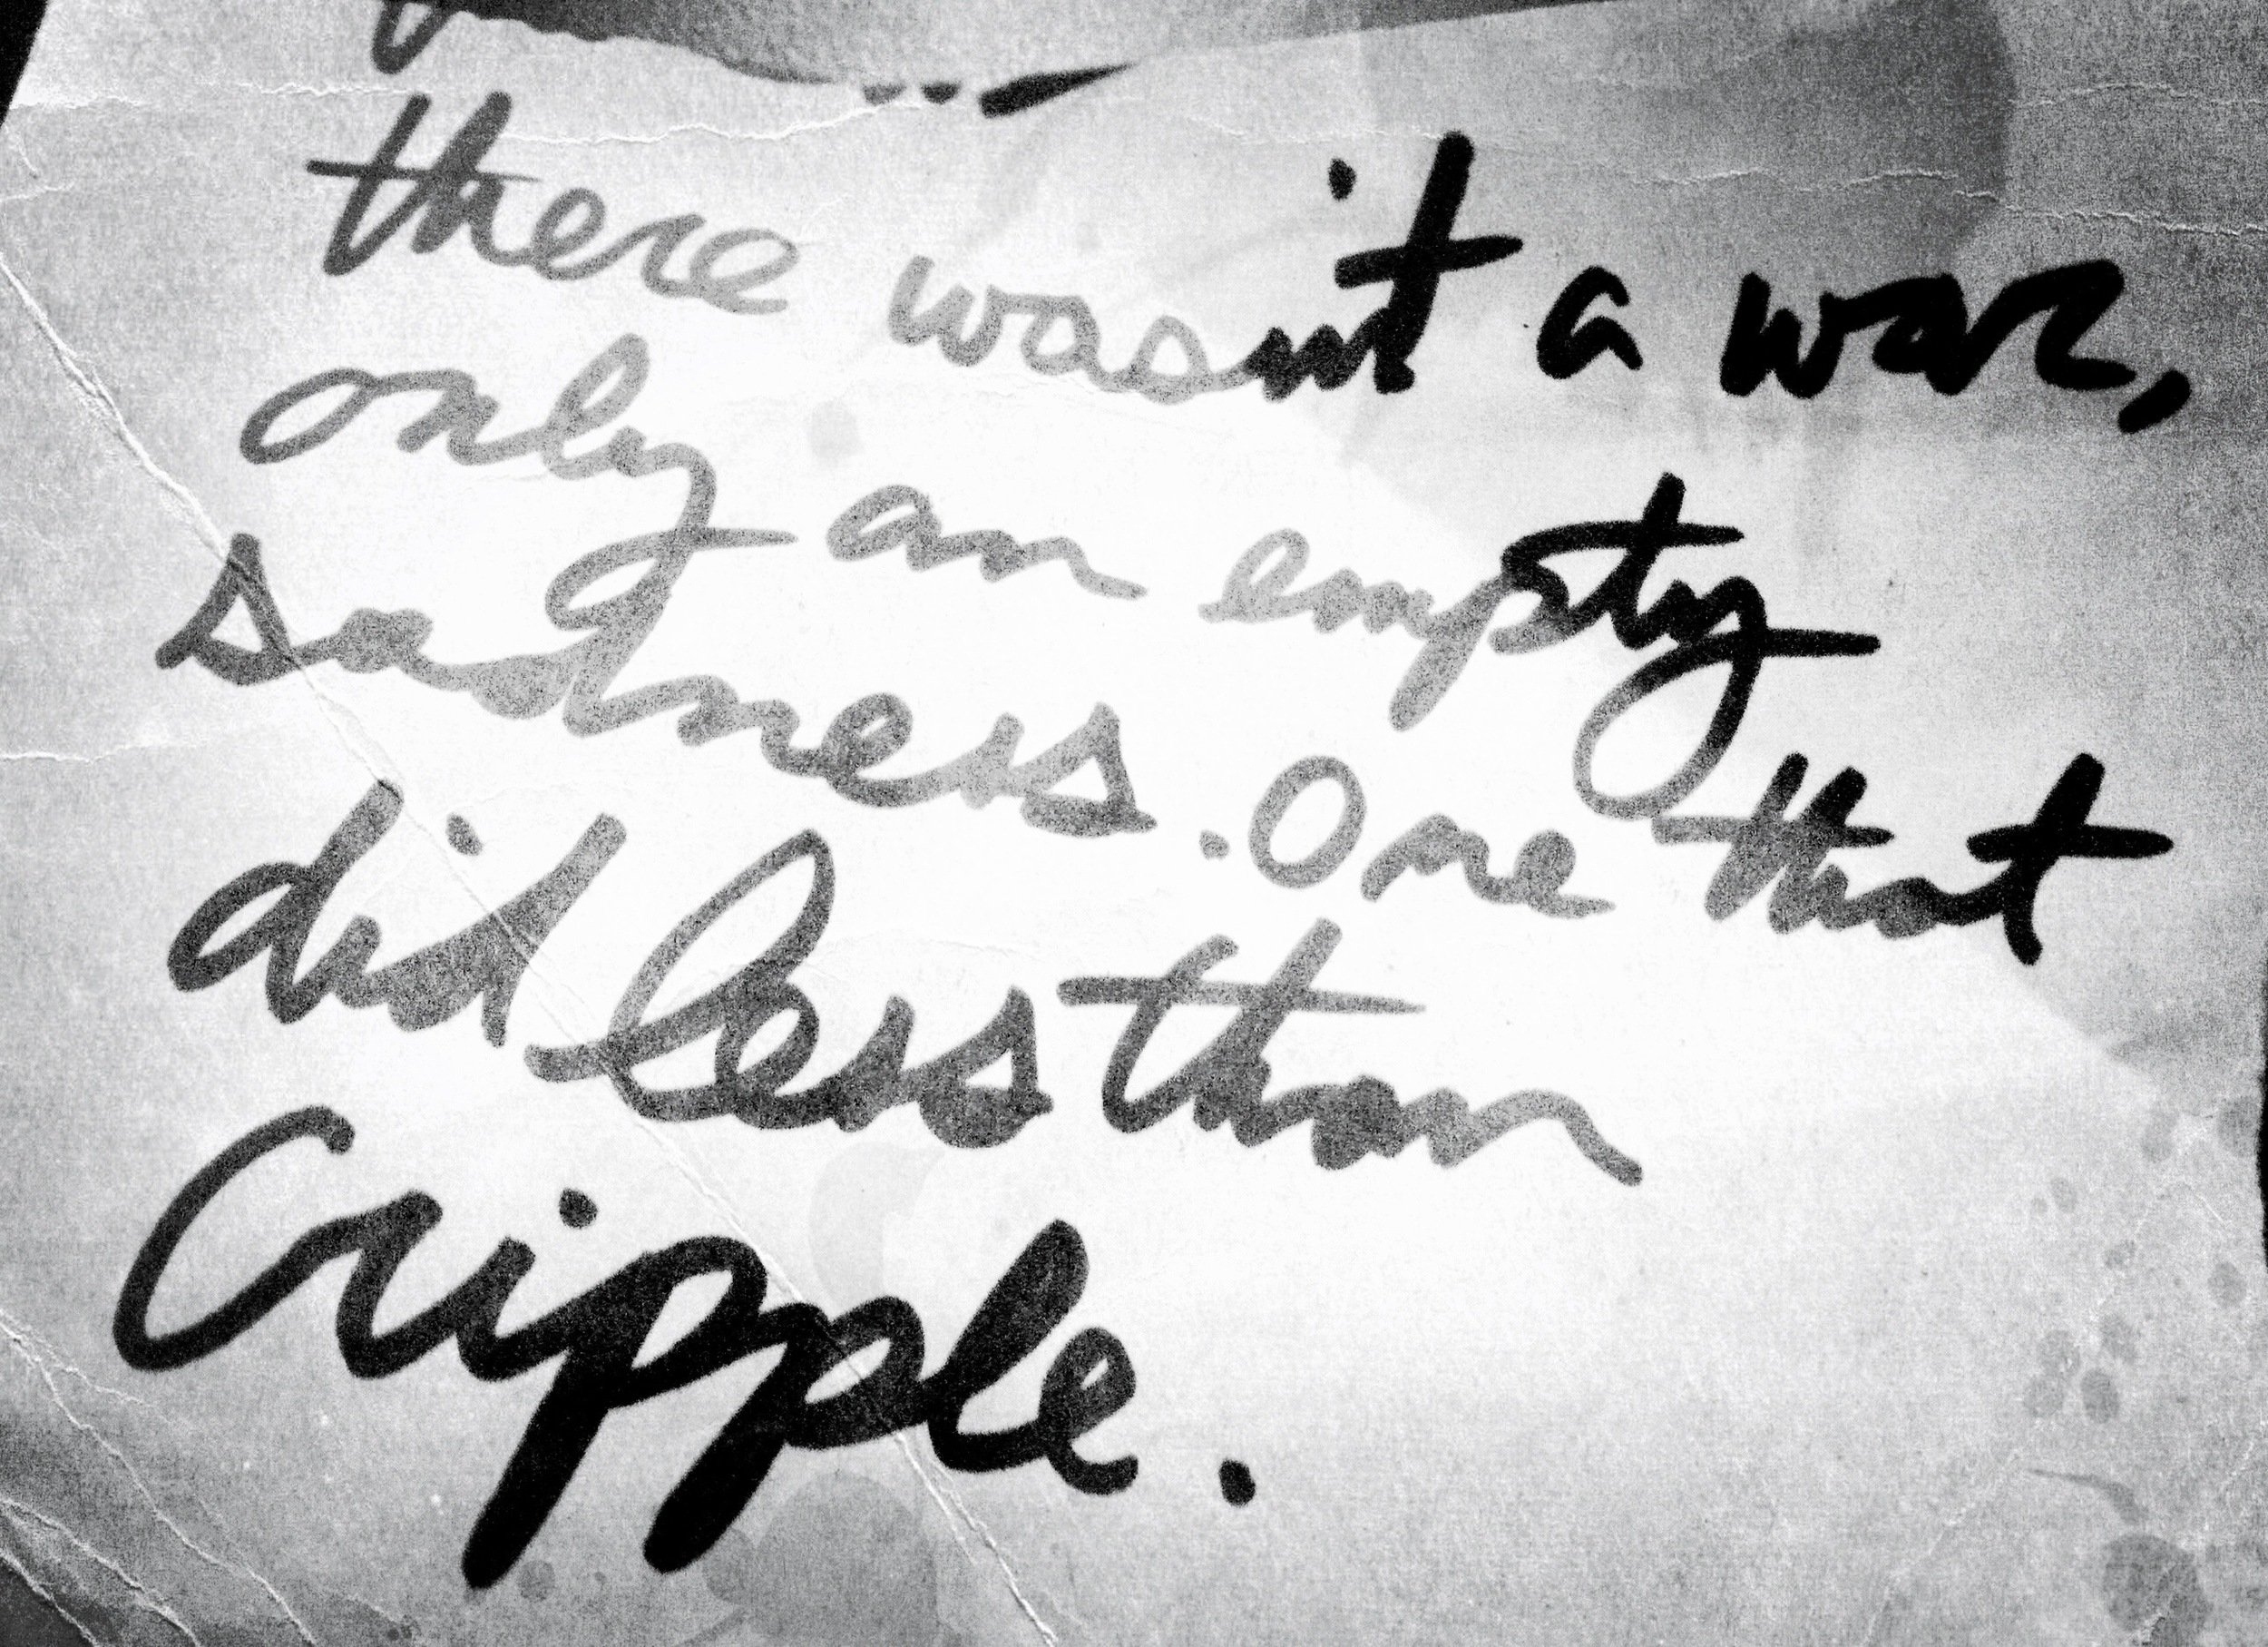 there wasn't a war,
only an empty
sadness. One that
did less than
Cripple.